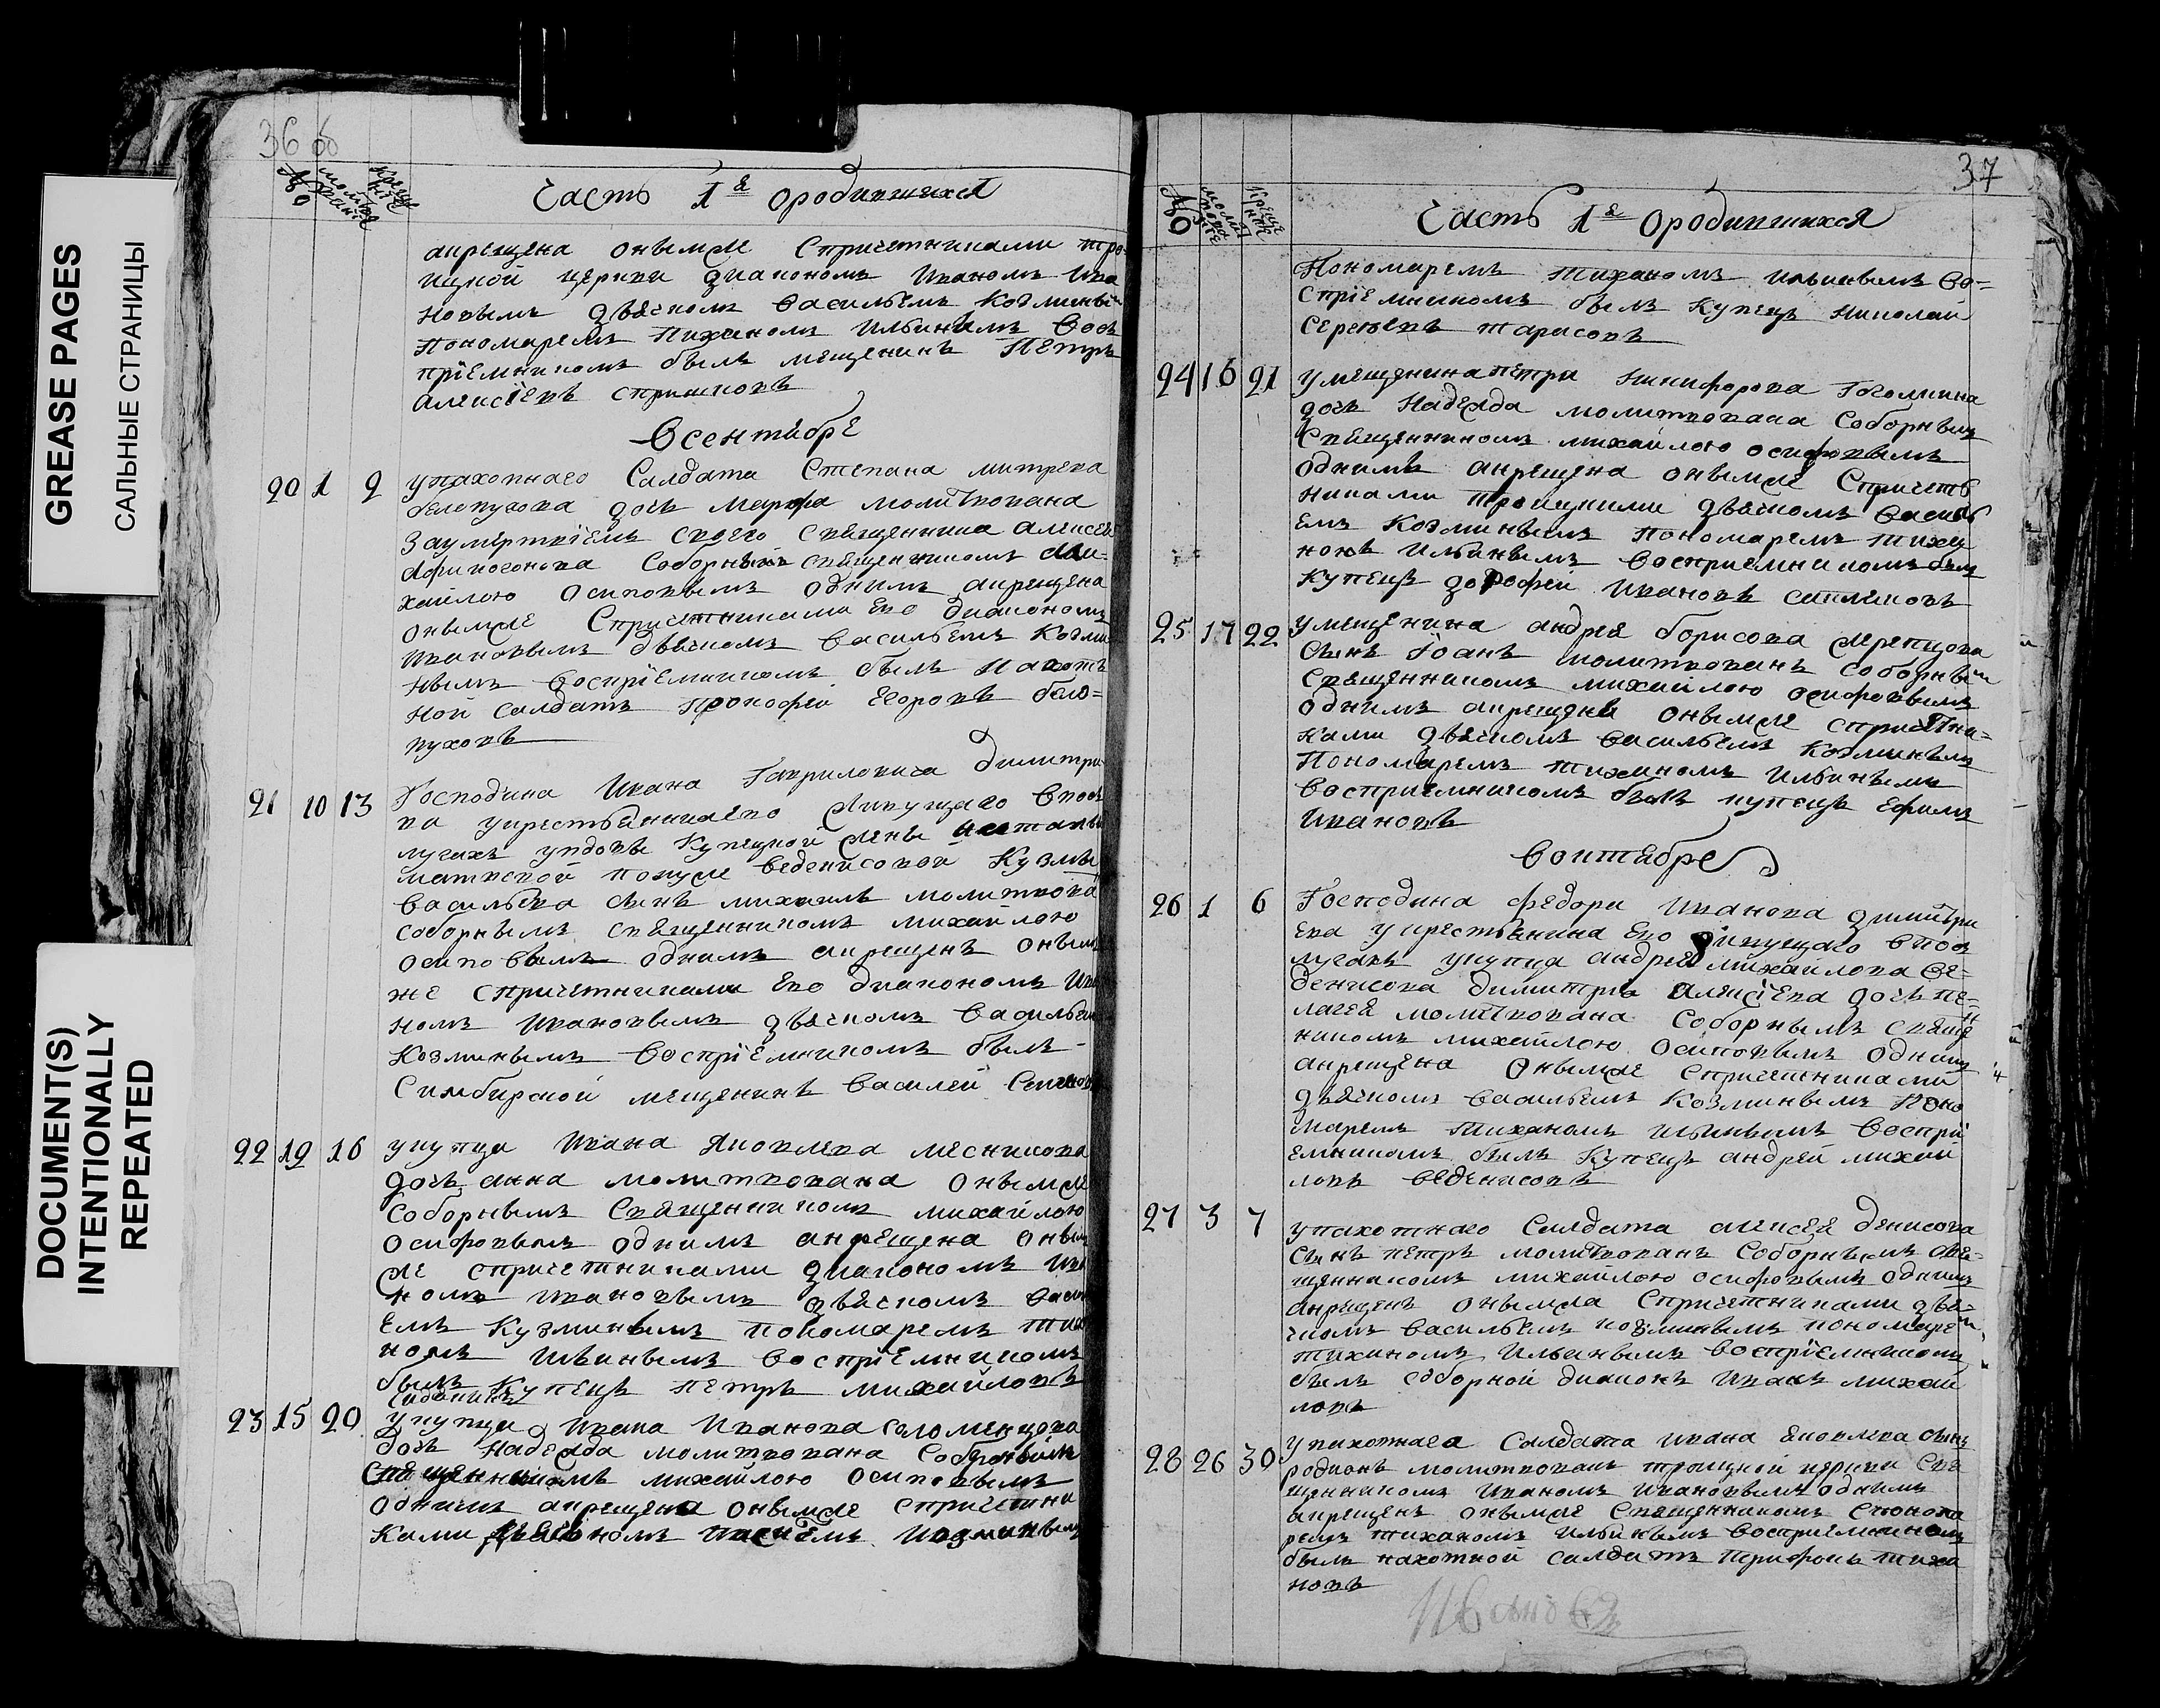 GREASE PAGES
САЛЬНЫЕ СТРАНИЦЫ
DOCUMENT(S)
INTENTIONALLY
REPEATED
36 об
№
молит
крещ
Часть 1я ородившихся
акрещена онымже Спричетниками тро
ицкой церкви диакономъ Иваномъ Ива
новымъ дьячкомъ Васильемъ Козминым
Пономаремъ Тиханомъ Ильинымъ Вос
прiемникомъ былъ мещенинъ Петръ
Алексiевъ
Всентябре
20 1 2 упахотнаго Салдата Степана митрева
белопухова дочь Марфа молитвована
заумертвiемъ своего священника Алексея
Афиногенова Соборнымъ священникомъ Ми-
хайлою Осиповымъ однимъ акрещена
онымже Спричетниками Ево диакономъ
Ивановымъ дьячкомъ Васильемъ Козми
нымъ воспрiемникомъ былъ Пахот
ной салдатъ Прокофей Егоровъ бело=
пуховъ
21 10 13 Господина Ивана Гавриловича Димитри
ва укрестьянина ево живущаго впос
лугахъ удовы Купецкой жены
матвевой Кузмы
Васильева сынъ михаилъ молитвова
соборнымъ священникомъ михайлою
осиповымъ однимъ акрещенъ оным
же спричетниками Ево диакономъ Ива
номъ Ивановымъ дьячкомъ Васильем
Козминымъ Воспрiемникомъ былъ-
Симбирской мещенинъ Василей Семенов
22 12 16 укупца Ивана Яковлева месникова
дочь анна молитвована онымже
Соборнымъ Священникомъ михайлою
Осифовымъ однимъ акрещена оным
же спричетниками диакономъ Ива
номъ Ивановымъ дьячкомъ Васил
емъ Кузминымъ пономаремъ Тиха
номъ Ильинымъ Воспрiемникомъ
былъ Купецъ Петръ михайловъ
23 15 20 укупца Ивана Иванова соломенцова
дочь Надежда молитвована Соборнымъ
Священникомъ михайлою осиповымъ
однимъ акрещена онымже спричетни
ками дьячкомъ Васильемъ Козминымъ
37
№
молит
крещ
Часть 1я ородившихся
Пономаремъ тиханомъ ильинымъ Во=
спрiемникомъ былъ Купецъ Николай
Сергеевъ тарасовъ
24 16 21 умещенина петра Никифорова Гоголкина
дочь Надежда молитвована Соборнымъ
Священникомъ михайлою осифовымъ
однимъ акрещена онымже Спричетъ
никами троицкими дьячкомъ Василь
емъ Козминымъ Пономаремъ тиха
номъ Ильинымъ Восприемникомъ былъ
купецъ дорофей Ивановъ
25 17 22 умещенина андрея борисова жеребцова
сынъ Iоанъ молитвованъ Соборным
Священникомъ михайлою осифовымъ
однимъ акрещенъ онымже спричетни=
ками дьячкомъ Васильемъ Козминымъ
Пономаремъ тиханомъ Ильинымъ
Восприемникомъ былъ купецъ ефимъ
Ивановъ
Воктябре
26 1 6 Господина федора Иванова димитри
ева укрестьянина ево живущаго впос
лугахъ укупца андрея михайлова Ве=
денисова димитрия алексiева дочь пе=
лагея молитвована Соборнымъ свяще
никомъ михайлою осиповымъ однимъ
акрещена Онымже спричетниками
дьячкомъ Васильемъ Козминымъ Поно
маремъ тиханомъ Ильинымъ Воспрi
емникомъ былъ Купецъ андрей михай
ловъ веденисовъ
27 3 7 упахотнаго Салдата алексея денисова
сынъ петръ молитвованъ Соборнымъ свя=
щенникомъ михайлою осифовымъ однимъ
акрещенъ онымже Спричетниками дья=
чкомъ Васильемъ козминымъ пономаре
тиханомъ Ильинымъ Воспрiемникомъ
былъ соборной диаконъ Иванъ михай
ловъ
28 26 30 упахотнаго Салдата Ивана Яковлева сынъ
родионъ молитвованъ троицкой церкви Свя
щенникомъ Иваномъ Ивановымъ однимъ
акрещенъ онымже СвященникомъСпонома
ремъ тиханомъ Ильинымъ Восприемникомъ
былъ пахотной салдатъ Перфонъ тиха
новъ